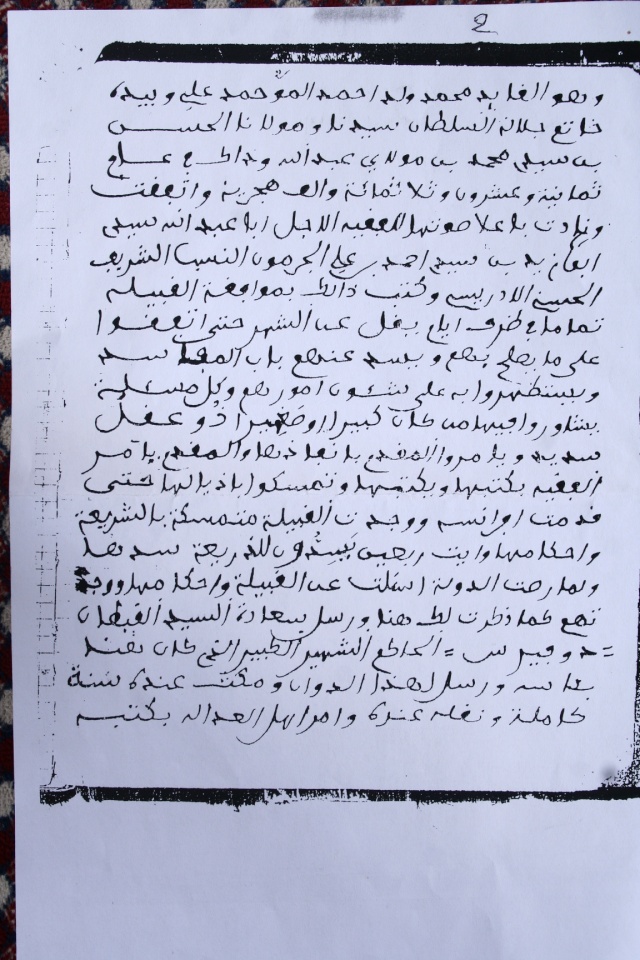 2
وهو القايد محمد ولد احمد الموحمد علي وبيده
خاتم جلالة السلطان سيدنا ومولانا الحسن
بن سيدي محمد بن مولاي عبد الله وذالك في عام
ثمانية وعشرون وثلاثمائة والف هجرية واتفقت
ونادت باعلا صوتها للفقيه الاجل ابا عبد الله سيدي
بن سيدي احمد بن علي النسب الشريف
الحسني الادريسي وكتب ذالك بموافقة القبيلة
تماما في ظرف ايام يقل عن الشهر حتى اتفقوا
على ما يصلح بهم ويسد عندهم باب المفا سد
ويستظهروا به على شئون امورهم وكل مسئلة
يشاوروا فيها من كان كبيرا او صغيرا ذو عقل
سديد ويامروا المقدم بانفاذها والمقدم يامر
الفقيه بكتبها ويكتبها وتمسكوا باذيالها حتى
قدمت افرانسه ووجدت القبيلة متمسكة بالشريعة
واحكامها وايت ربعين يسدون للذريعة سدها
ولما رصت الدولة اسئلت عن القبيلة واحكامها ووجد
تهم كما ذكرت لك هنا ورسل سعادة السيد القبطان
= دوفيرس = الحاكم الشهير الكبير الذي كان بهذا
ورسل لهذا الديوان ومكث عنده سنة
كاملة ونقله عنده وامر اهل العدالة بكتبه